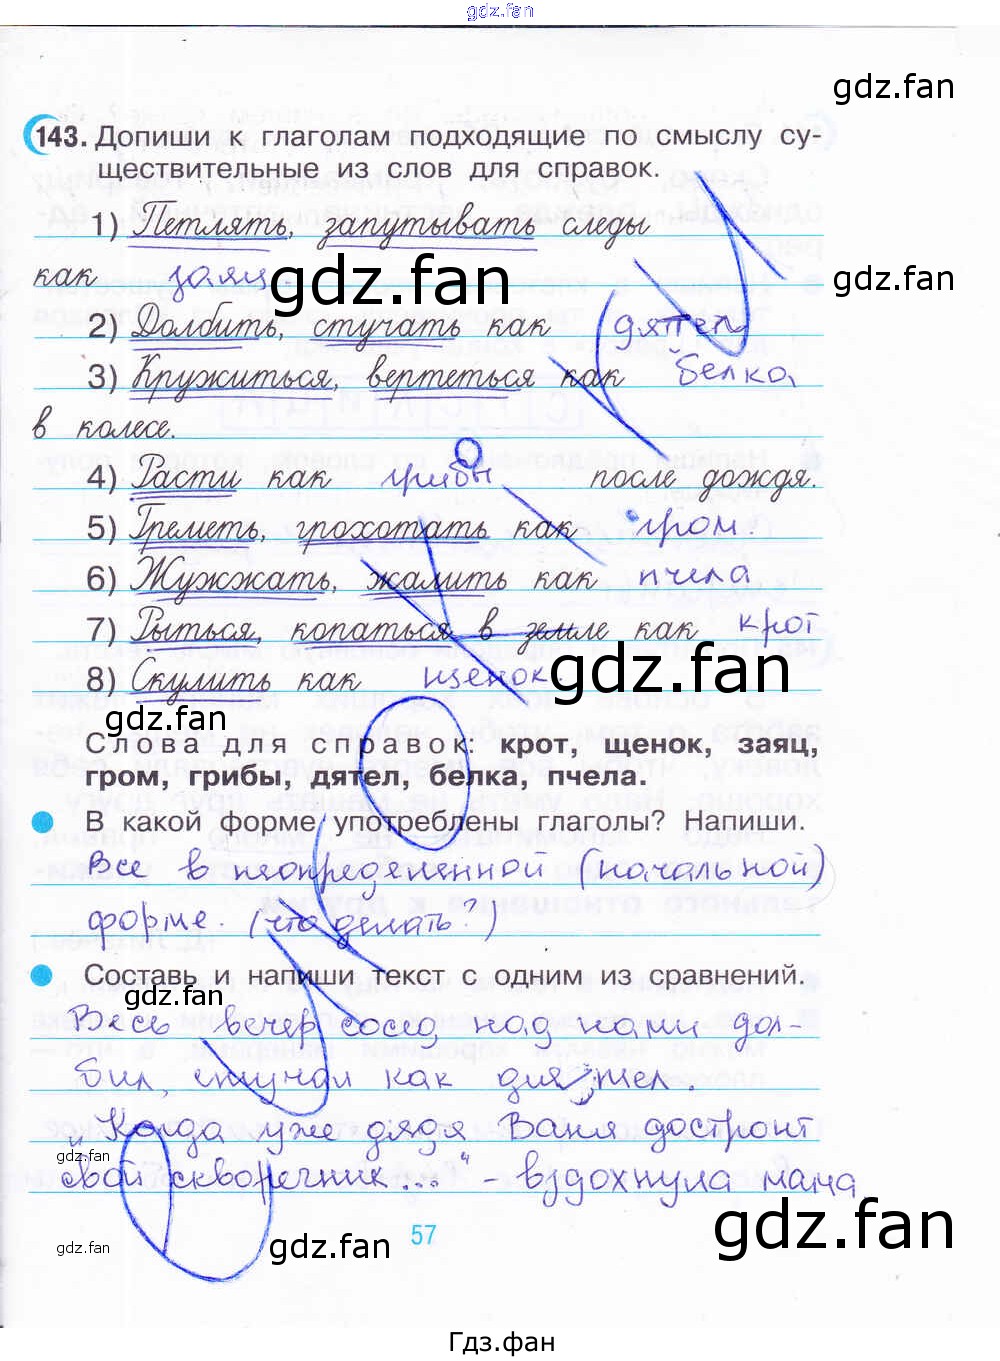 gdz.fan
gdz.fan
143. Допиши к глаголам подходящие по смыслу су-
ществительные из слов для справок.
1) Петлять, запутывать следы
как заяц
gdz.fan
gdz.fan
2) Долбить, стучать как дятел
3) Кружиться, вертеться как белка
в колесе.
4) Расти как грибы после дождя.
5) Греметь, грохотать как гром.
6) Жужжать, жалить как пчела
7) Рыться, копаться в земле как крот
8) Скулить как щенок.
gdz.fan
gdz.fan
Слова для справок: крот, щенок, заяц,
гром, грибы, дятел, белка, пчела.
В какой форме употреблены глаголы? Напиши.
Все в неопределенной (начальной)
форме. (что делать?)
Составь и напиши текст с одним из сравнений.
gdz.fan
Весь вечер сосед над нами дол-
бил, стучал как дятел.
"Когда уже дядя Ваня достроит
свой скворечник..." - вздохнула мама
gdz.fan
gdz.fan
57
gdz.fan
Гдз.фан